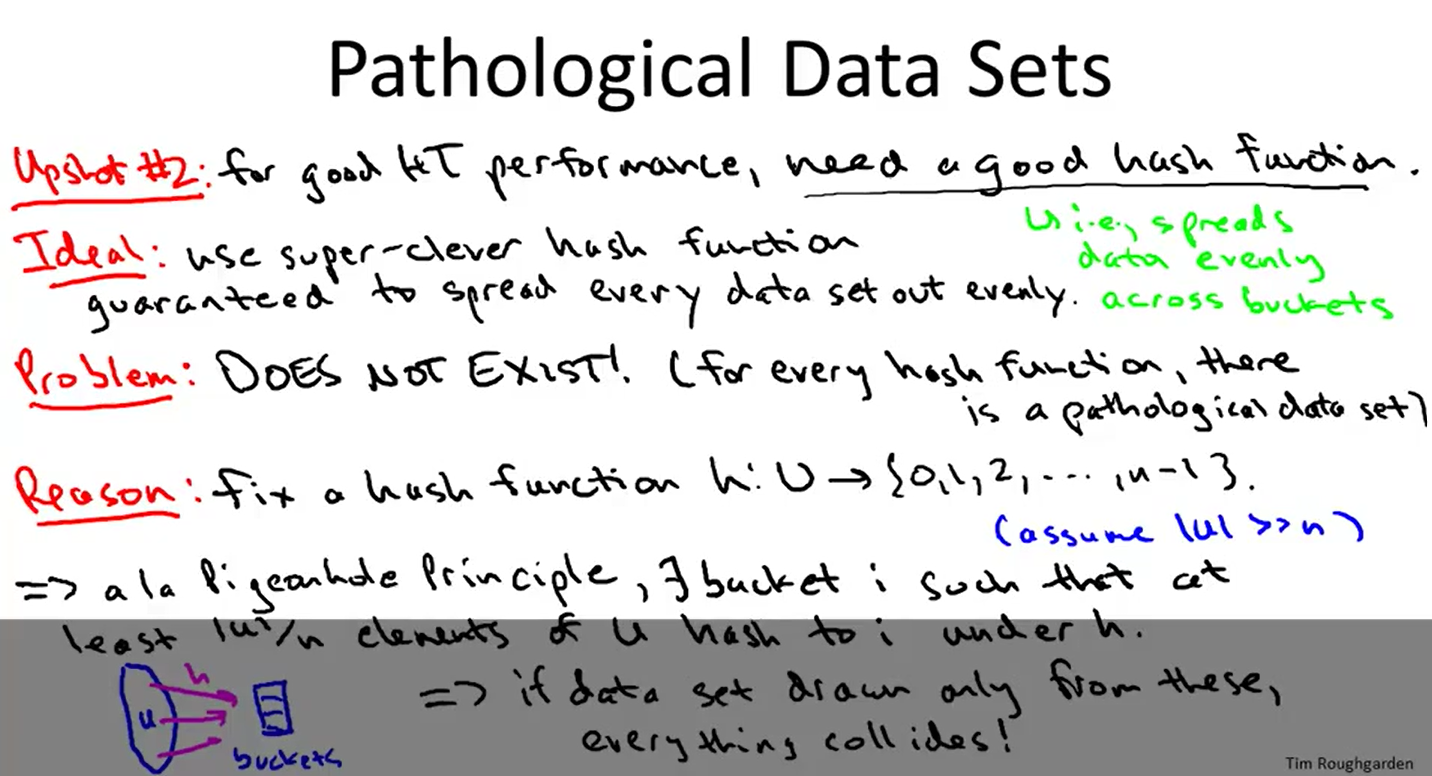 Pathological Data Sets
Upshot #2: for good HT performance, need a good hash function.
i.e., spreads
data evenly
across buckets
Ideal: use super-clever hash function
guaranteed to spread every data set out evenly.
Problem: DOES NOT EXIST! (for every hash function, there
is a pathological data set)
Reason: fix a hash function h: U → {0,1,2,...,n-1}.
(assume |u| >> n)
=> a la Pigeonhole Principle, ∃ bucket i such that at
least |u|/n elements of U hash to i under h.
h
u
buckets
=> if data set drawn only from these,
everything collides!
Tim Roughgarden